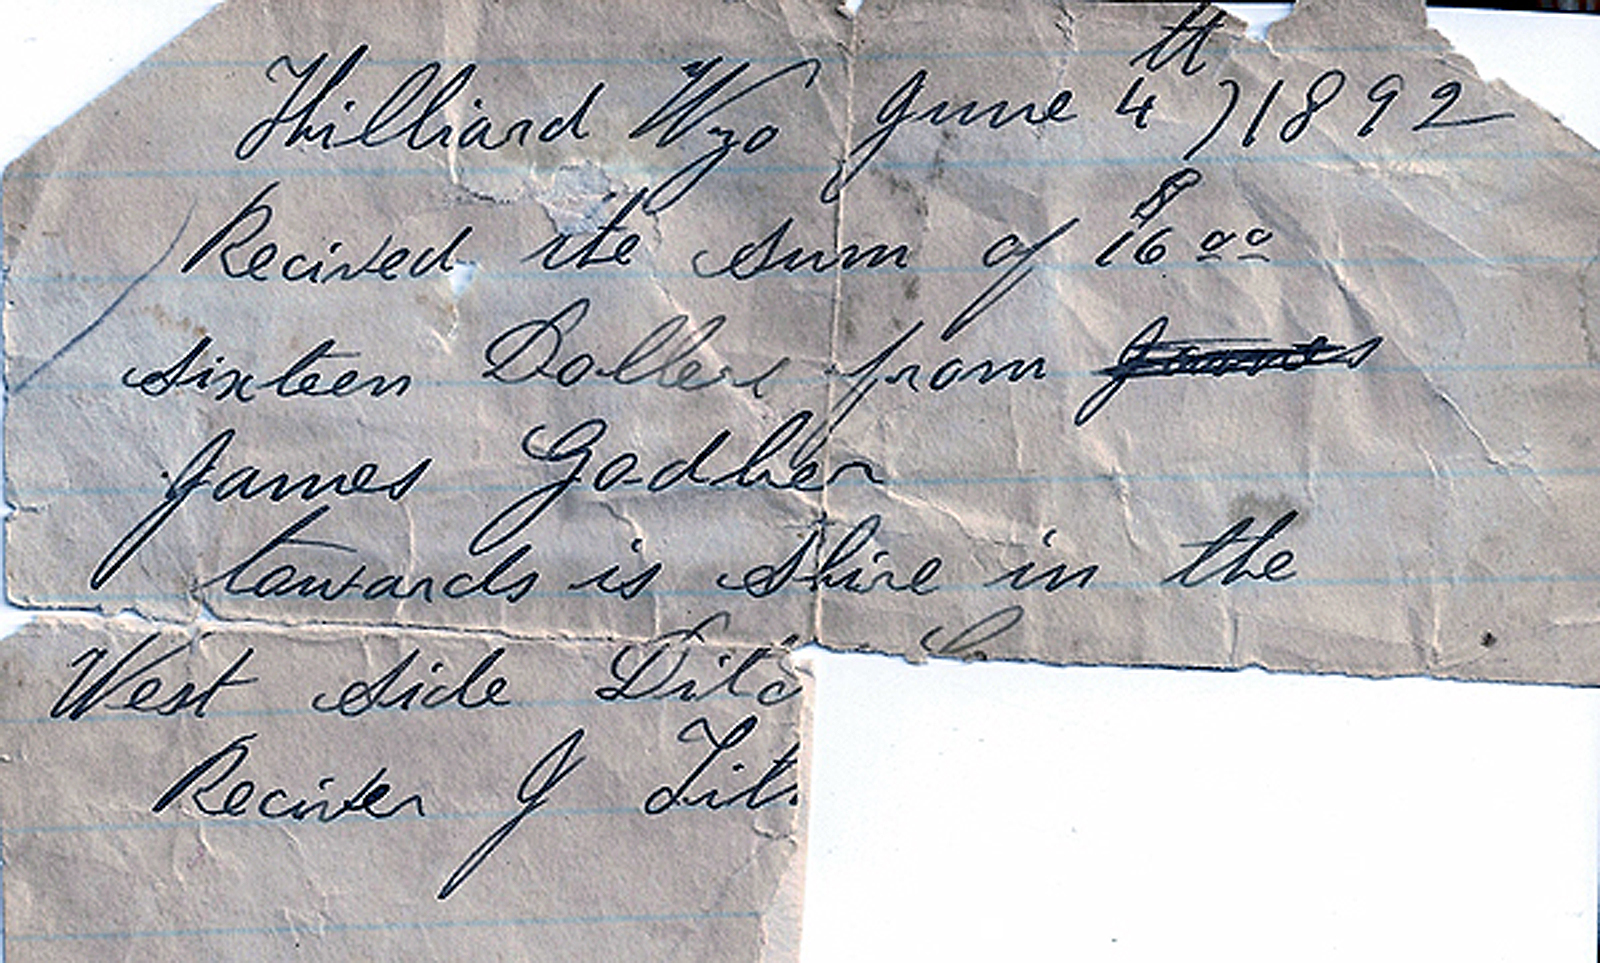 Hilliard Wyo June 4th) 1892
Recived the sum of $16 00
sixteen Dollers from
James Godber
towards is Shire in the
West Side Ditc
Reciver J